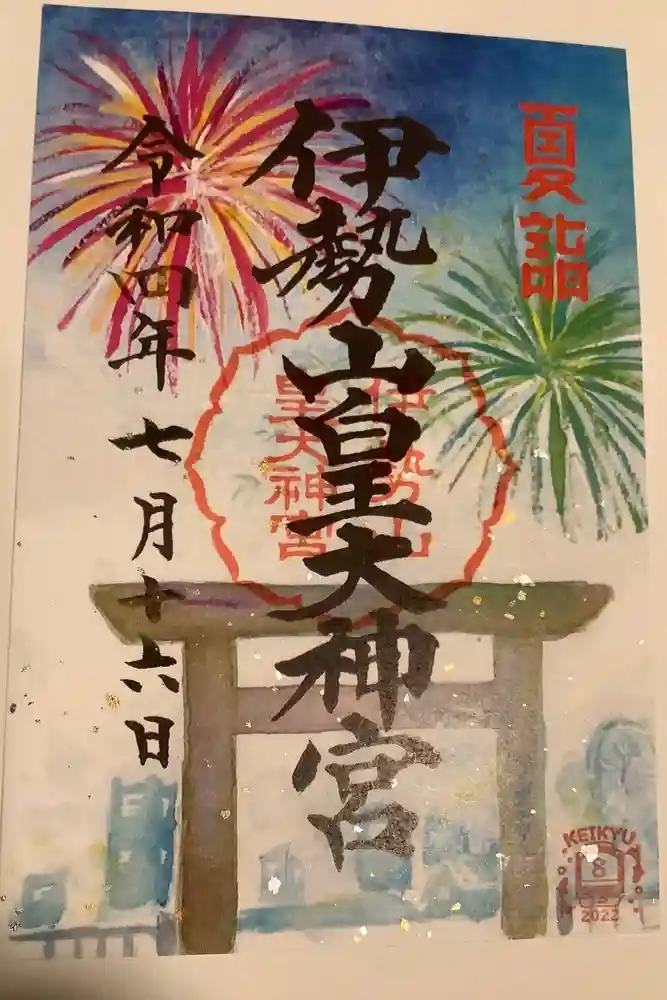 夏詣
伊勢山皇大神宮
伊勢山
皇大神宮
令和四年七月十六日
KEIKYU
8
2022